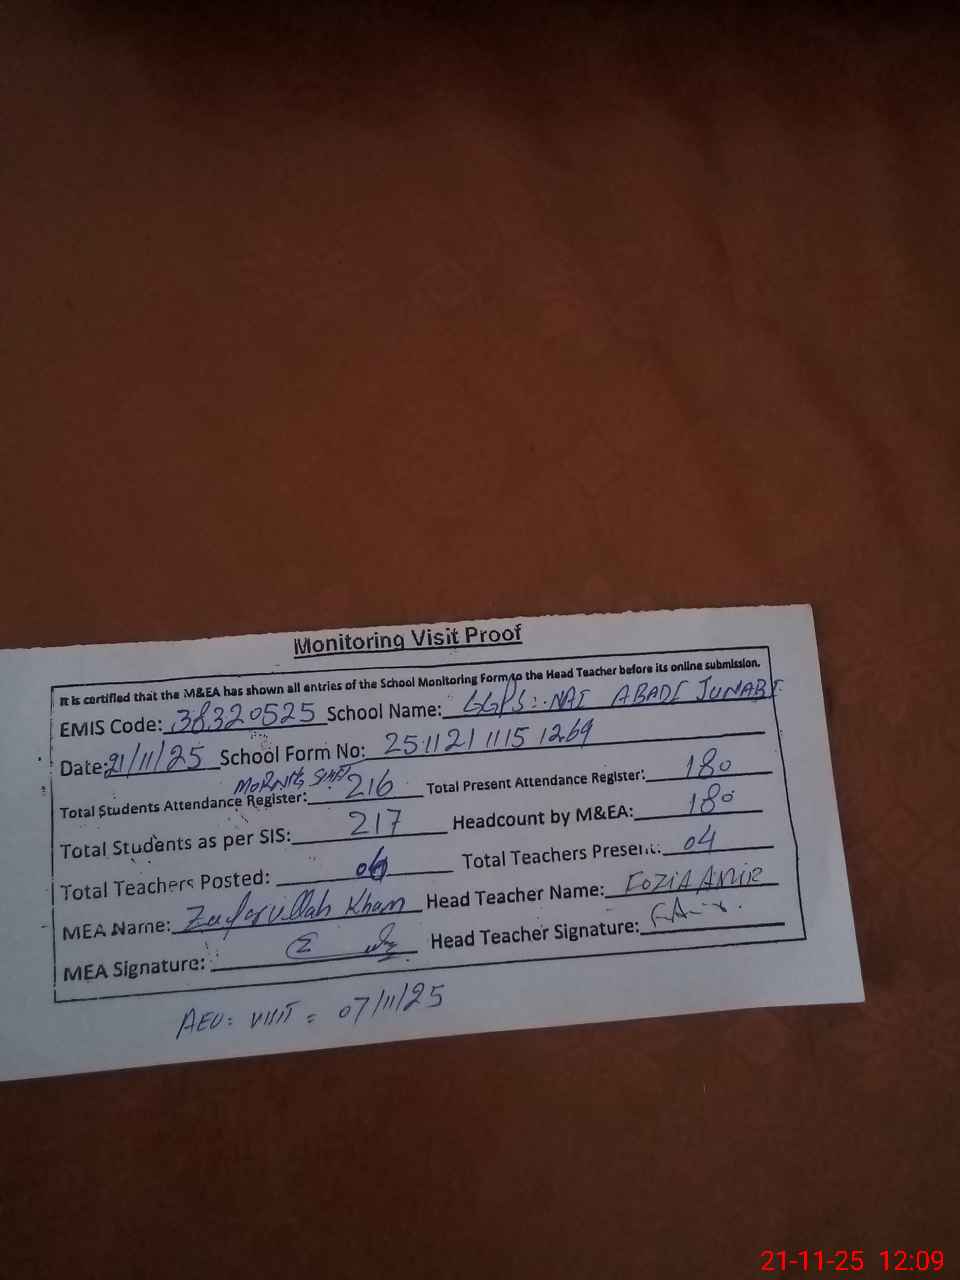 Monitoring Visit Proof
It is certified that the M&EA has shown all entries of the School Monitoring Form to the Head Teacher before its online submission.
EMIS Code: 38320525 School Name: GGPS: NAI ABADI JUNABI
Date: 21/11/25 School Form No: 251121 1115 1269
MORNING SHIFT
Total Students Attendance Register: 216 Total Present Attendance Register: 180
Total Students as per SIS: 217 Headcount by M&EA: 180
Total Teachers Posted: 06 Total Teachers Present: 04
MEA Name: Zafarullah Khan Head Teacher Name: FOZIA AMIR
MEA Signature: Head Teacher Signature: F.Amir.
AEO: VISIT = 07/11/25
21-11-25 12:09